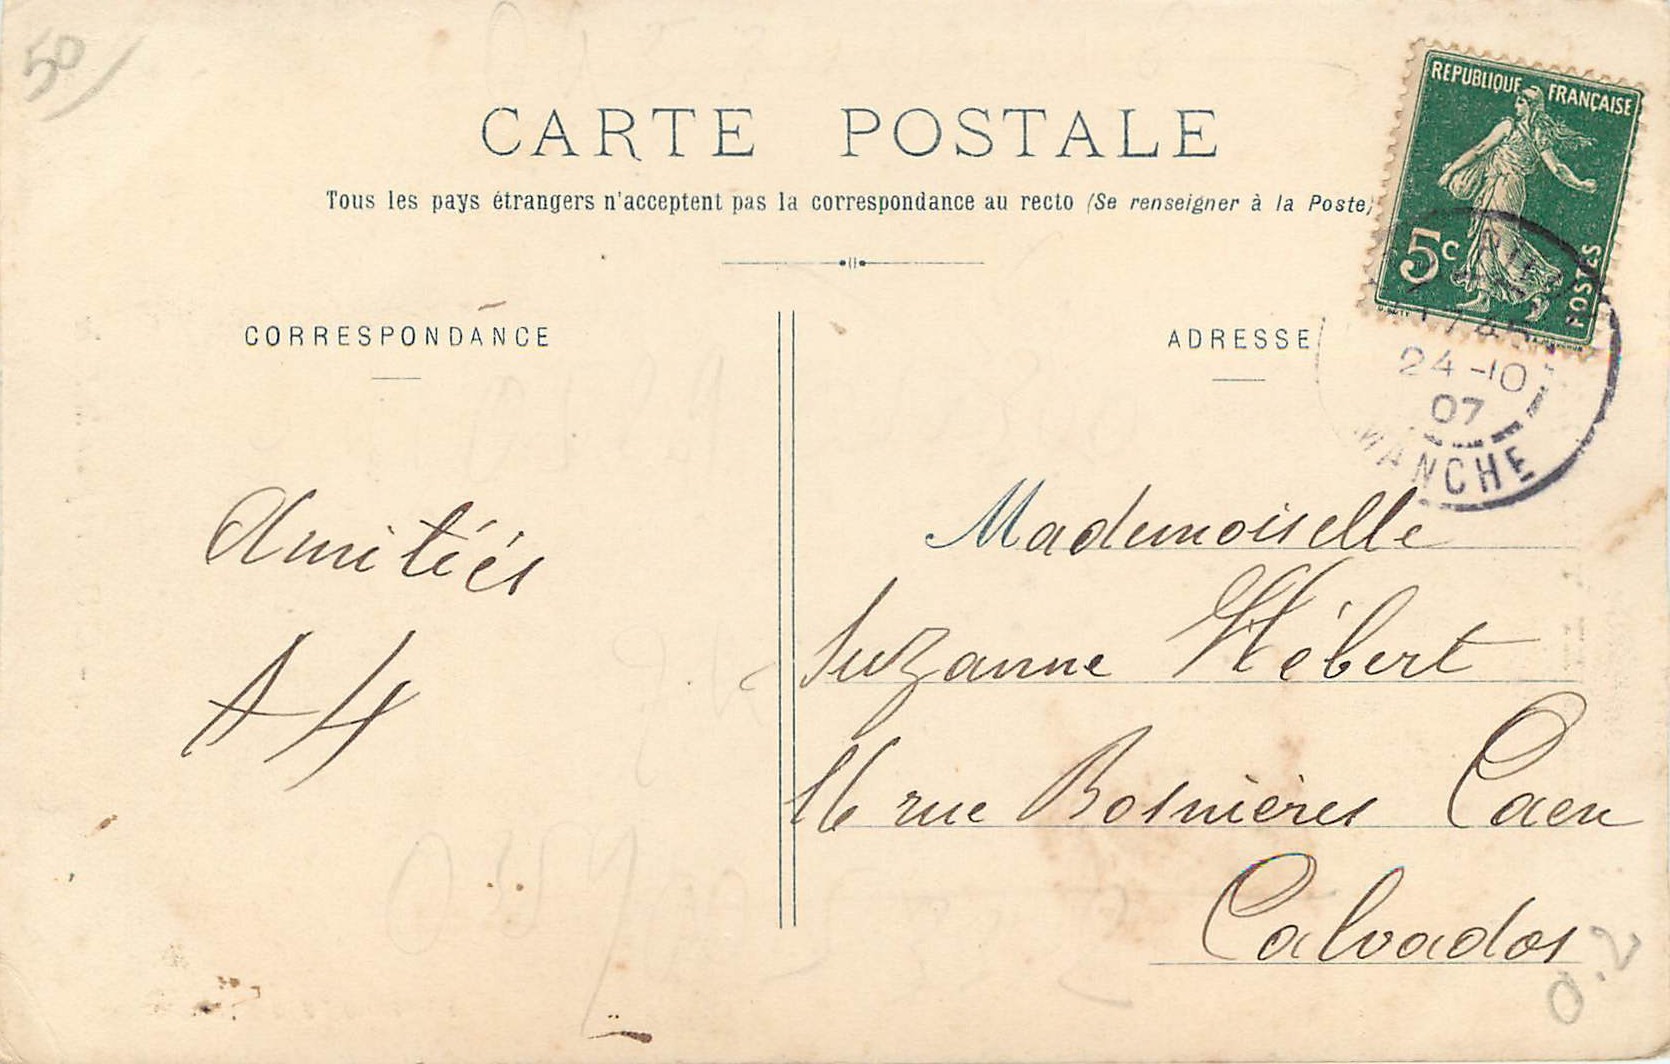 50/
CARTE POSTALE
Tous les pays étrangers n'acceptent pas la correspondance au recto (Se renseigner à la Poste)
REPUBLIQUE FRANÇAISE
5c
POSTES
24 -10
07
MANCHE
CORRESPONDANCE
ADRESSE
Amitiés
Mademoiselle
Suzanne Hébert
16 rue Bosnières Caen
Calvados
0.2